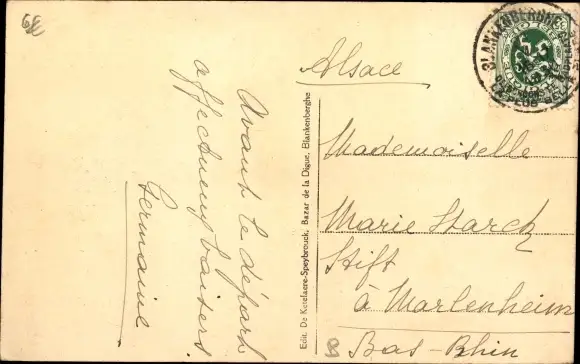 Avant le départ
affectueux baisers
Germaine
Edit. De Ketelaere-Speybrouck, Bazar de la Digue, Blankenberghe
Alsace
Mademoiselle
Marie Starck
Stift
à Marlenheim
Bas-Rhin
BLANKENBERGHE
5 c